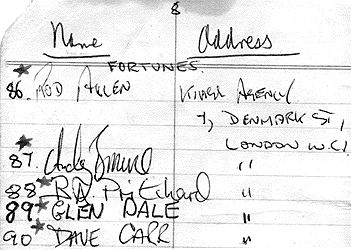 8
Name Address
FORTUNES.
86. ROD ALLEN
7, DENMARK ST,
LONDON W.C.1
87. "
88. Pritchard "
89. GLEN DALE "
90 DAVE CARR "